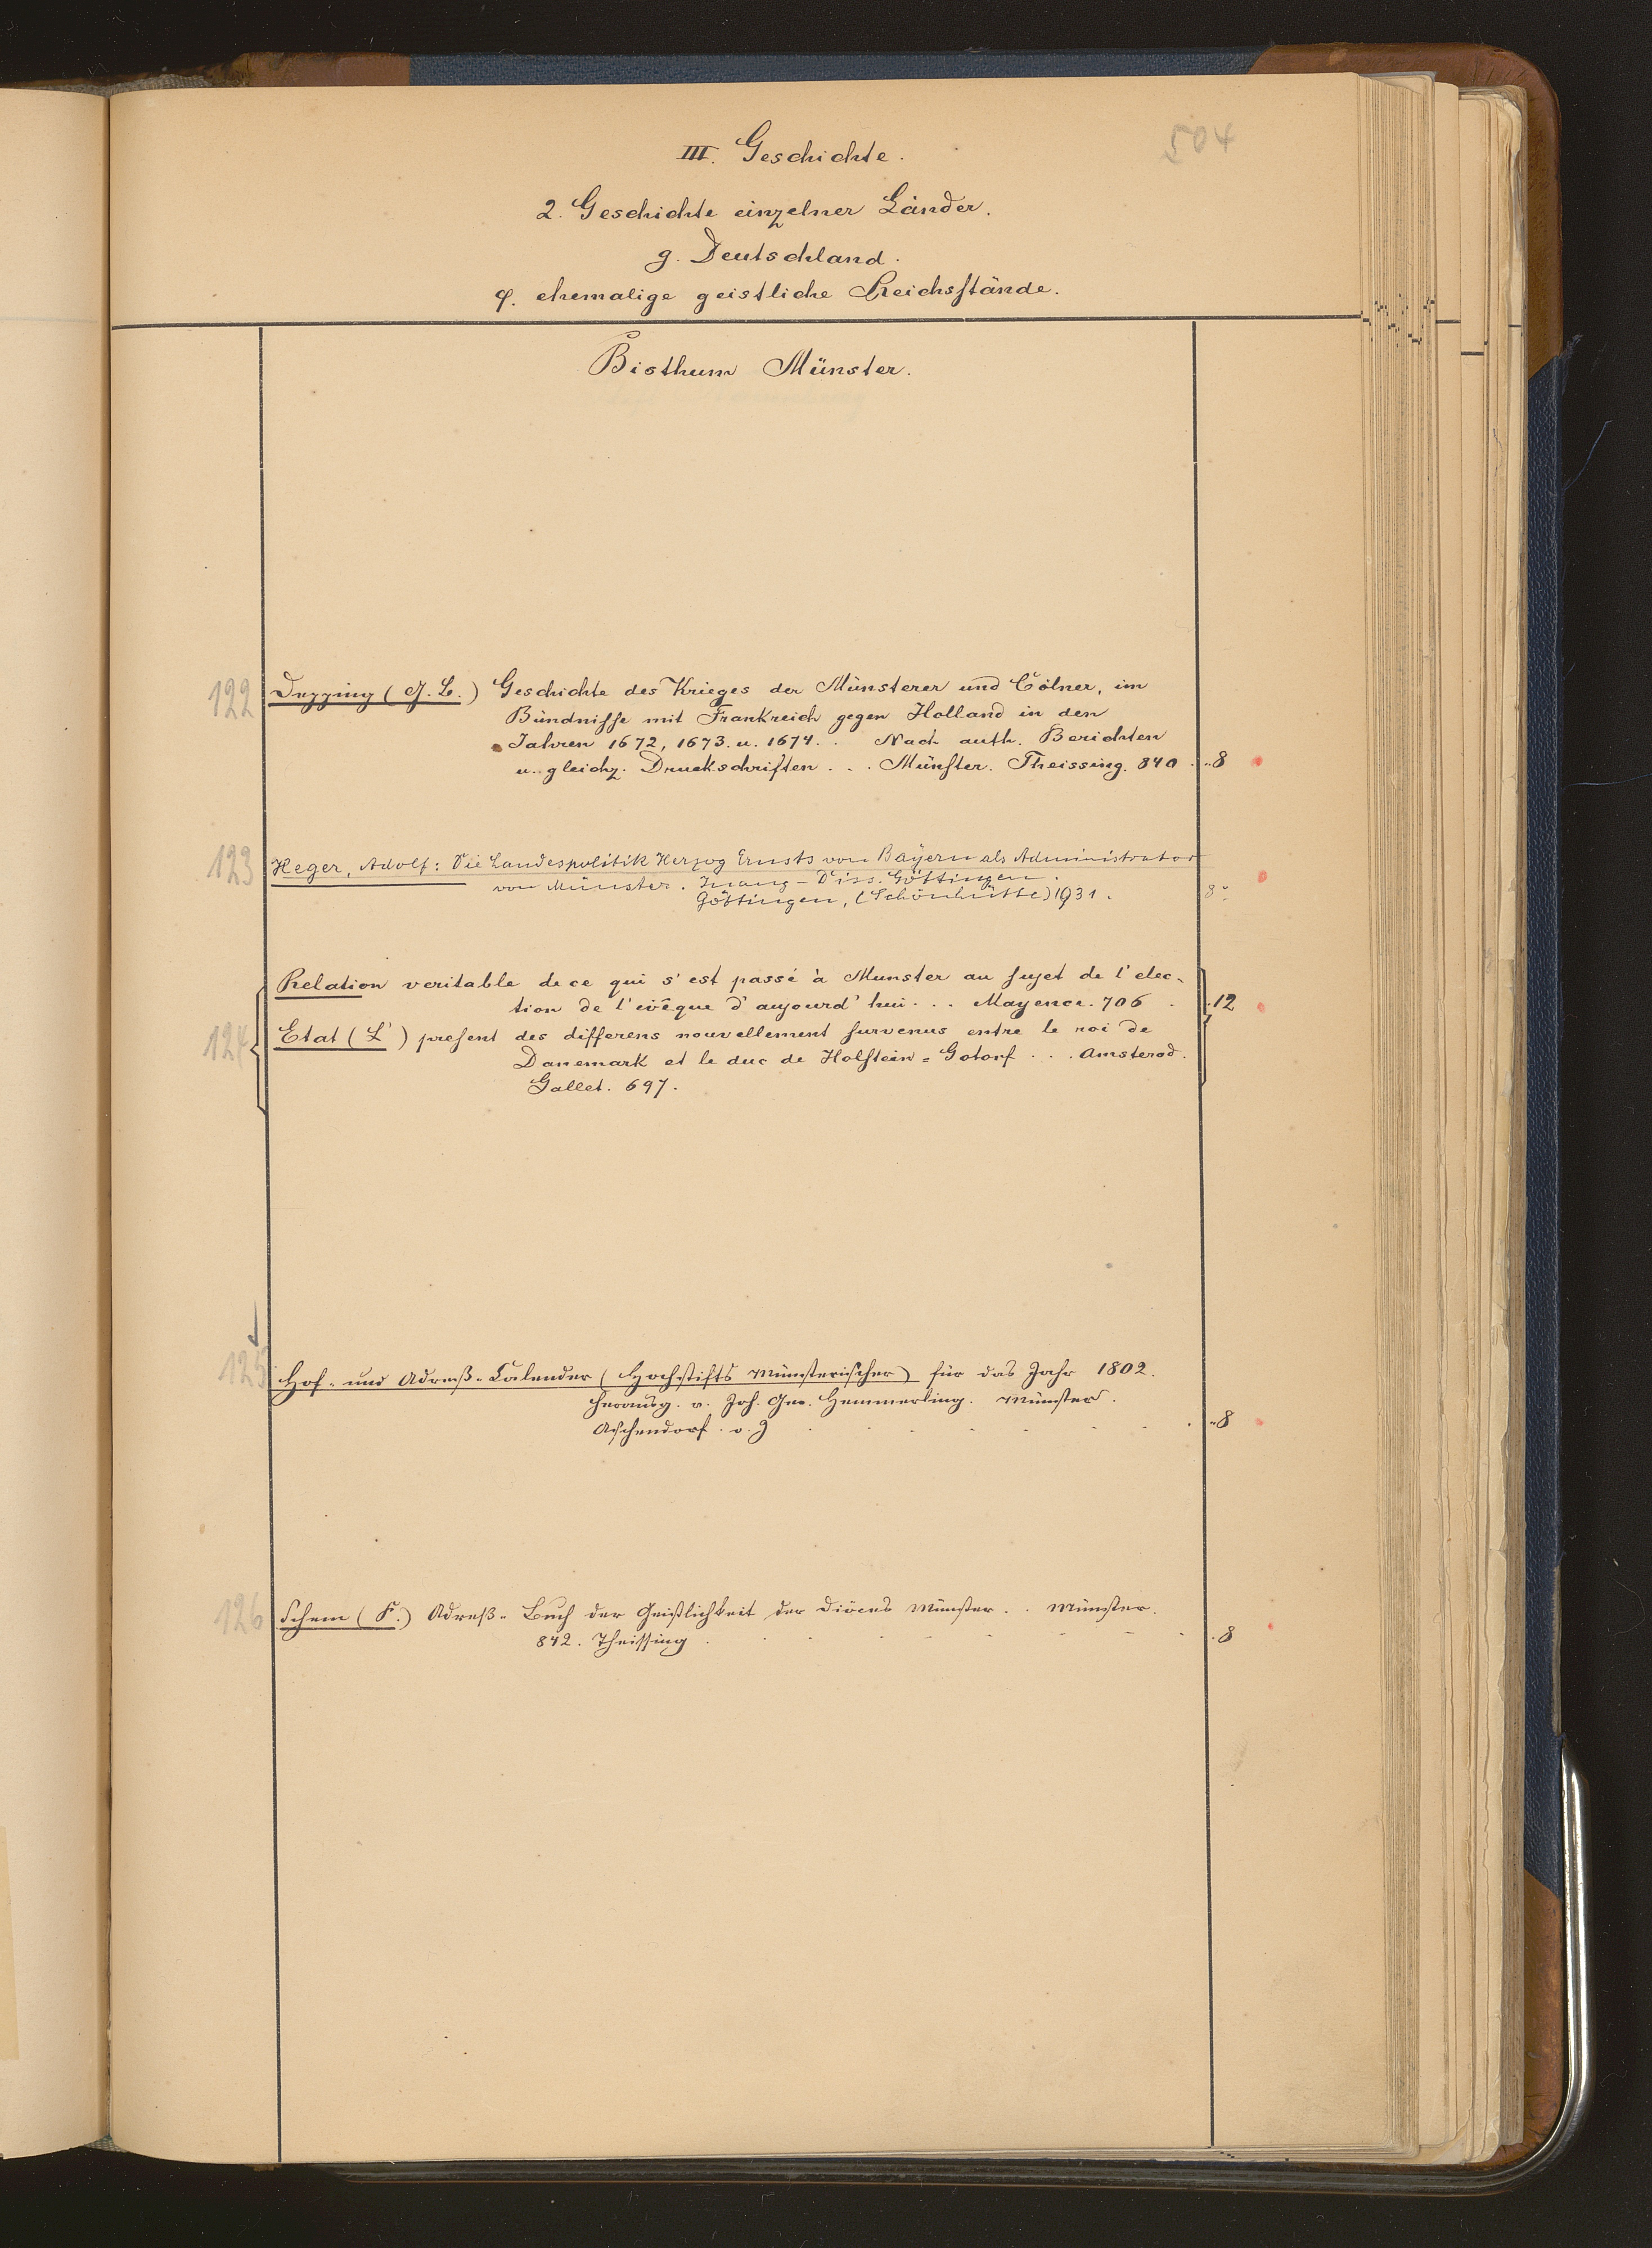 504
III. Geschichte.
2. Geschichte einzelner Länder.
g. Deutschland.
φ. ehemalige geistliche Reichsstände.
Bisthum Münster.
122 Depping (G. B.) Geschichte des Krieges der Münsterer und Cölner, im
Bündnisse mit Frankreich gegen Holland in den
Jahren 1672, 1673. u. 1674. . Nach auth. Berichten
u. gleichz. Druckschriften . . . Münster. Theissing. 840 . 8
123 Heger, Adolf: Die Landespolitik Herzog Ernsts von Bayern als Administrator
von Münster. Inaug-Diss. Göttingen.
Göttingen, (Schönhütte) 1931. 8°
Relation veritable de ce qui s'est passé à Munster au sujet de l'elec-
tion de l'evêque d'aujourd'hui . . . Mayence. 706 . 12
124 Etat (L') present des differens nouvellement survenus entre le roi de
Danemark et le duc de Holstein-Gotorf . . . Amsterod.
Gallet. 697.
125 Hof- und Adreß-Calender (Hochstifts Münsterischer) für das Jahr 1802.
herausg. v. Joh. Ger. Hemmerling. Münster.
Aschendorf. v. J . . . . . . . . 8
126 Schem (F.) Adreß-Buch der Geistlichkeit der Diöces Münster. . Münster.
842. Theissing . . . . . . . . 8